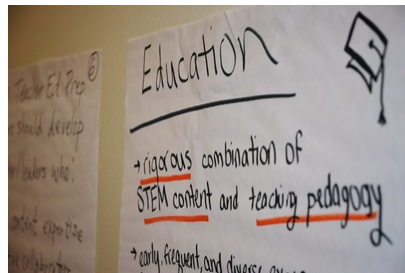 Teacher Ed Prep
6
should develop
leaders who:
content expertise
Education
→ rigorous combination of
STEM content and teaching pedagogy
→ early, frequent, and diverse